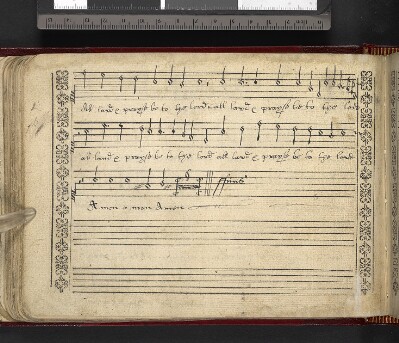 All laud & prayse be to the lord all laud & prayse be to the lord
all laud & prayse be to the lord all laud & prayse be to the lord
ffinis
Amen a men Amen